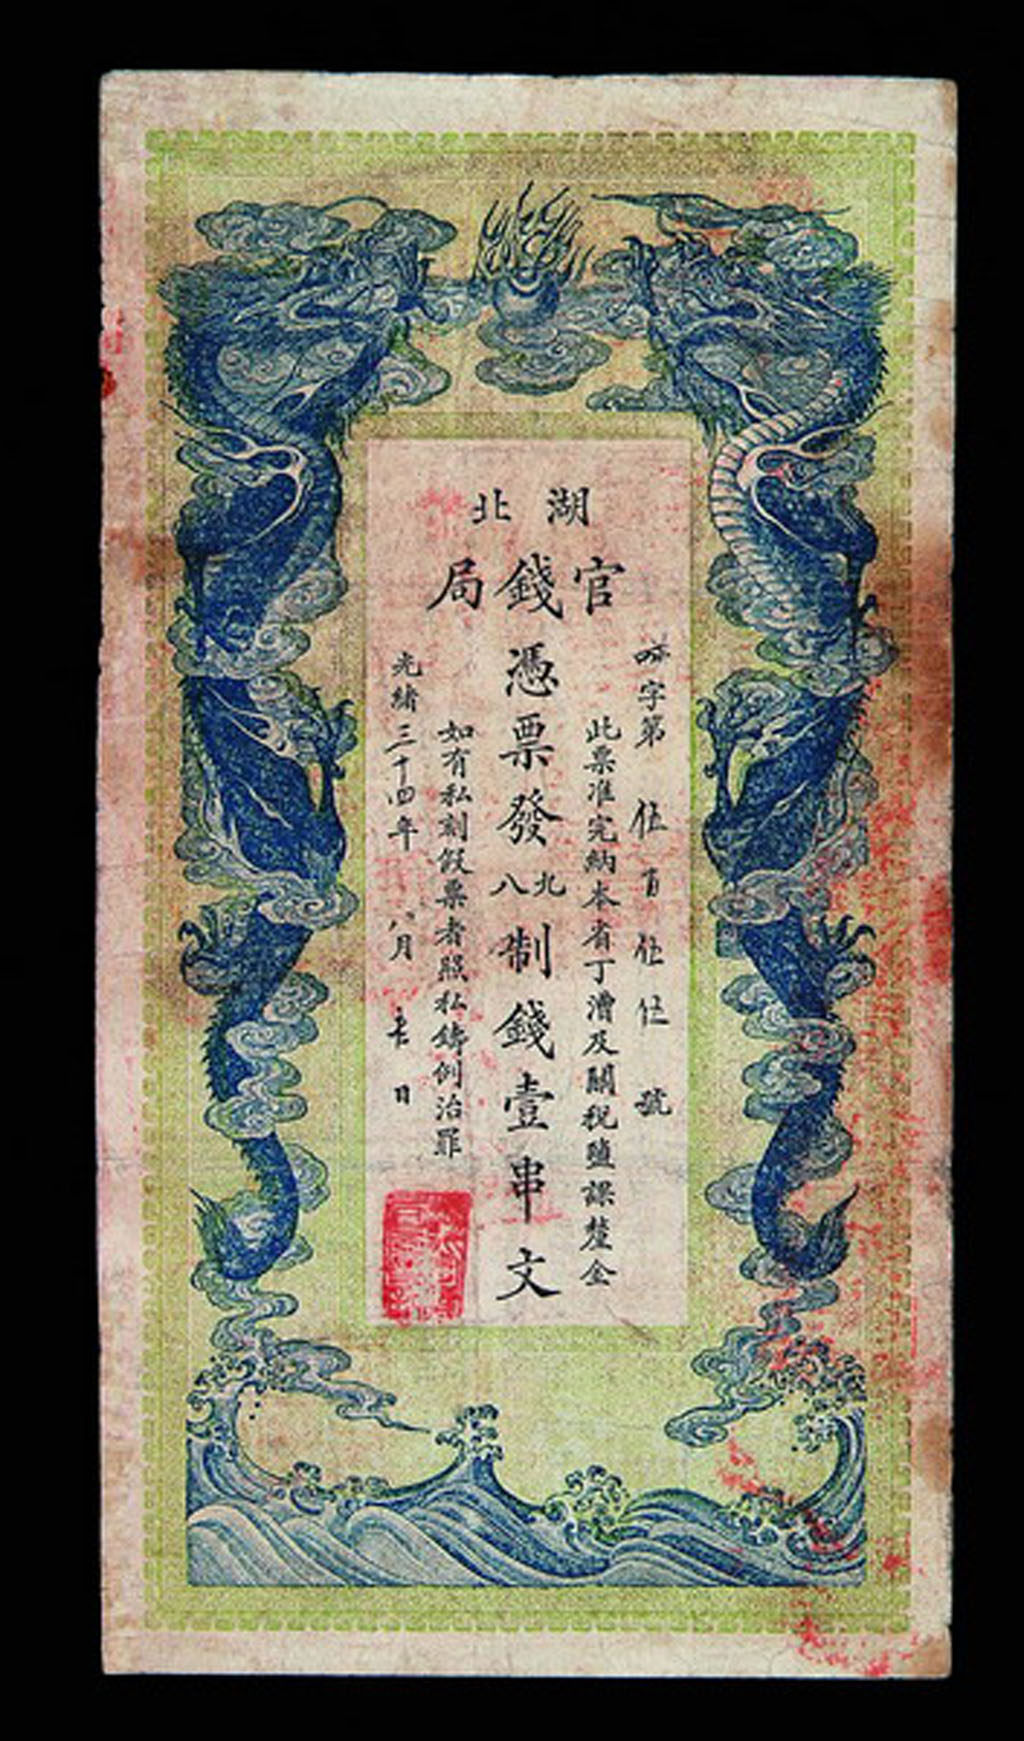 湖北
官錢局
字第伍百伍伍號
此票准完納本省丁漕及關稅鹽課釐金
憑票發九八制錢壹串文
如有私刻假票者照私鑄例治罪
光緒三十四年八月日